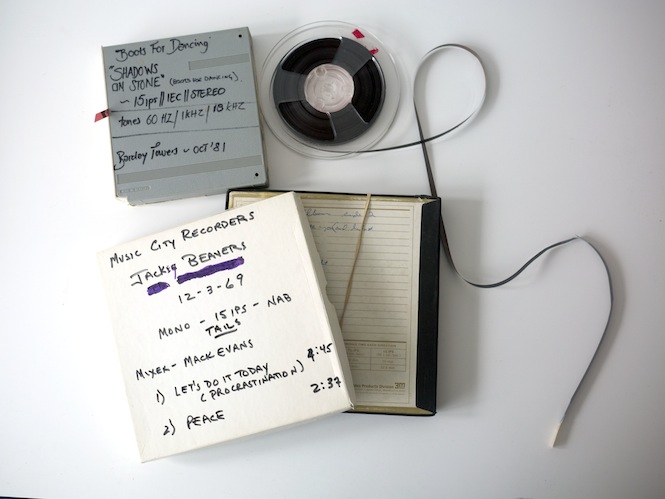 'Boots For Dancing'
"SHADOWS
ON STONE" (BOOTS FOR DANCING)
~ 15ips // IEC // STEREO
tones 60 HZ / 1KHZ / 15 KHZ
Barclay Towers ~ OCT '81
MUSIC CITY RECORDERS
JACKIE BEAVERS
12-3-69
MONO - 15 IPS - NAB
TAILS
MIXER - MACK EVANS
1) LET'S DO IT TODAY 4:45
(PROCRASTINATION)
2) PEACE 2:37
Products Division 3M